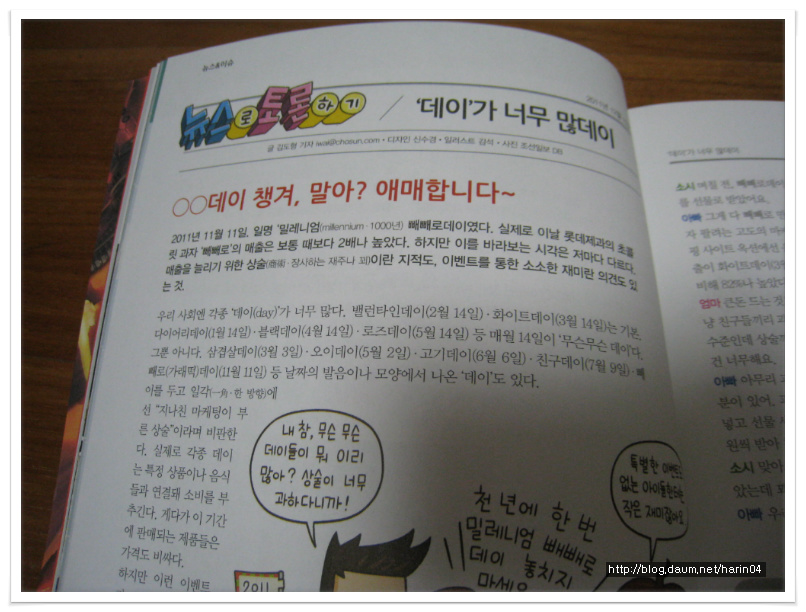 뉴스&이슈
뉴스로 토론하기 / '데이'가 너무 많데이
글 김도형 기자 iwai@chosun.com • 디자인 신수경 • 일러스트 김석 • 사진 조선일보 DB
○○데이 챙겨, 말아? 애매합니다~
2011년 11월 11일, 일명 '밀레니엄(millennium·1000년) 빼빼로데이였다. 실제로 이날 롯데제과의 초콜
릿 과자 '빼빼로'의 매출은 보통 때보다 2배나 높았다. 하지만 이를 바라보는 시각은 저마다 다르다.
매출을 늘리기 위한 상술(商術·장사하는 재주나 꾀)이란 지적도, 이벤트를 통한 소소한 재미란 의견도 있
는 것.
우리 사회엔 각종 '데이(day)'가 너무 많다. 밸런타인데이(2월 14일)·화이트데이(3월 14일)는 기본.
다이어리데이(1월 14일)·블랙데이(4월 14일)·로즈데이(5월 14일) 등 매월 14일이 '무슨무슨 데이'다.
그뿐 아니다. 삼겹살데이(3월 3일)·오이데이(5월 2일)·고기데이(6월 6일)·친구데이(7월 9일)·빼
빼로(가래떡)데이(11월 11일) 등 날짜의 발음이나 모양에서 나온 '데이'도 있다.
이를 두고 일각(一角·한 방향)에
선 "지나친 마케팅이 부
른 상술"이라며 비판한
다. 실제로 각종 데이
는 특정 상품이나 음식
들과 연결돼 소비를 부
추긴다. 게다가 이 기간
에 판매되는 제품들은
가격도 비싸다.
하지만 이런 이벤트
내 참, 무슨 무슨
데이들이 뭐 이리
많아? 상술이 너무
과하다니까!
천 년에 한 번
밀레니엄 빼빼로
데이 놓치지
마세요
특별한 이벤트
없는 아이들한테
작은 재미잖아요
2011
'데이'가 너무 많데이
소시 며칠 전, 빼빼로데이
를 선물로 받았어요.
아빠 그게 다 빼빼로 만
자 팔려는 고도의 마
핑 사이트 옥션에선
출이 화이트데이(3월
비해 82%나 높았다
엄마 큰돈 드는 것
냥 친구들끼리
수준인데 상술
건 너무해요.
아빠 아무리
분이 있어.
넣고 선물
원씩 받아
소시 맞아
았는데
아빠 우
http://blog.daum.net/harin04